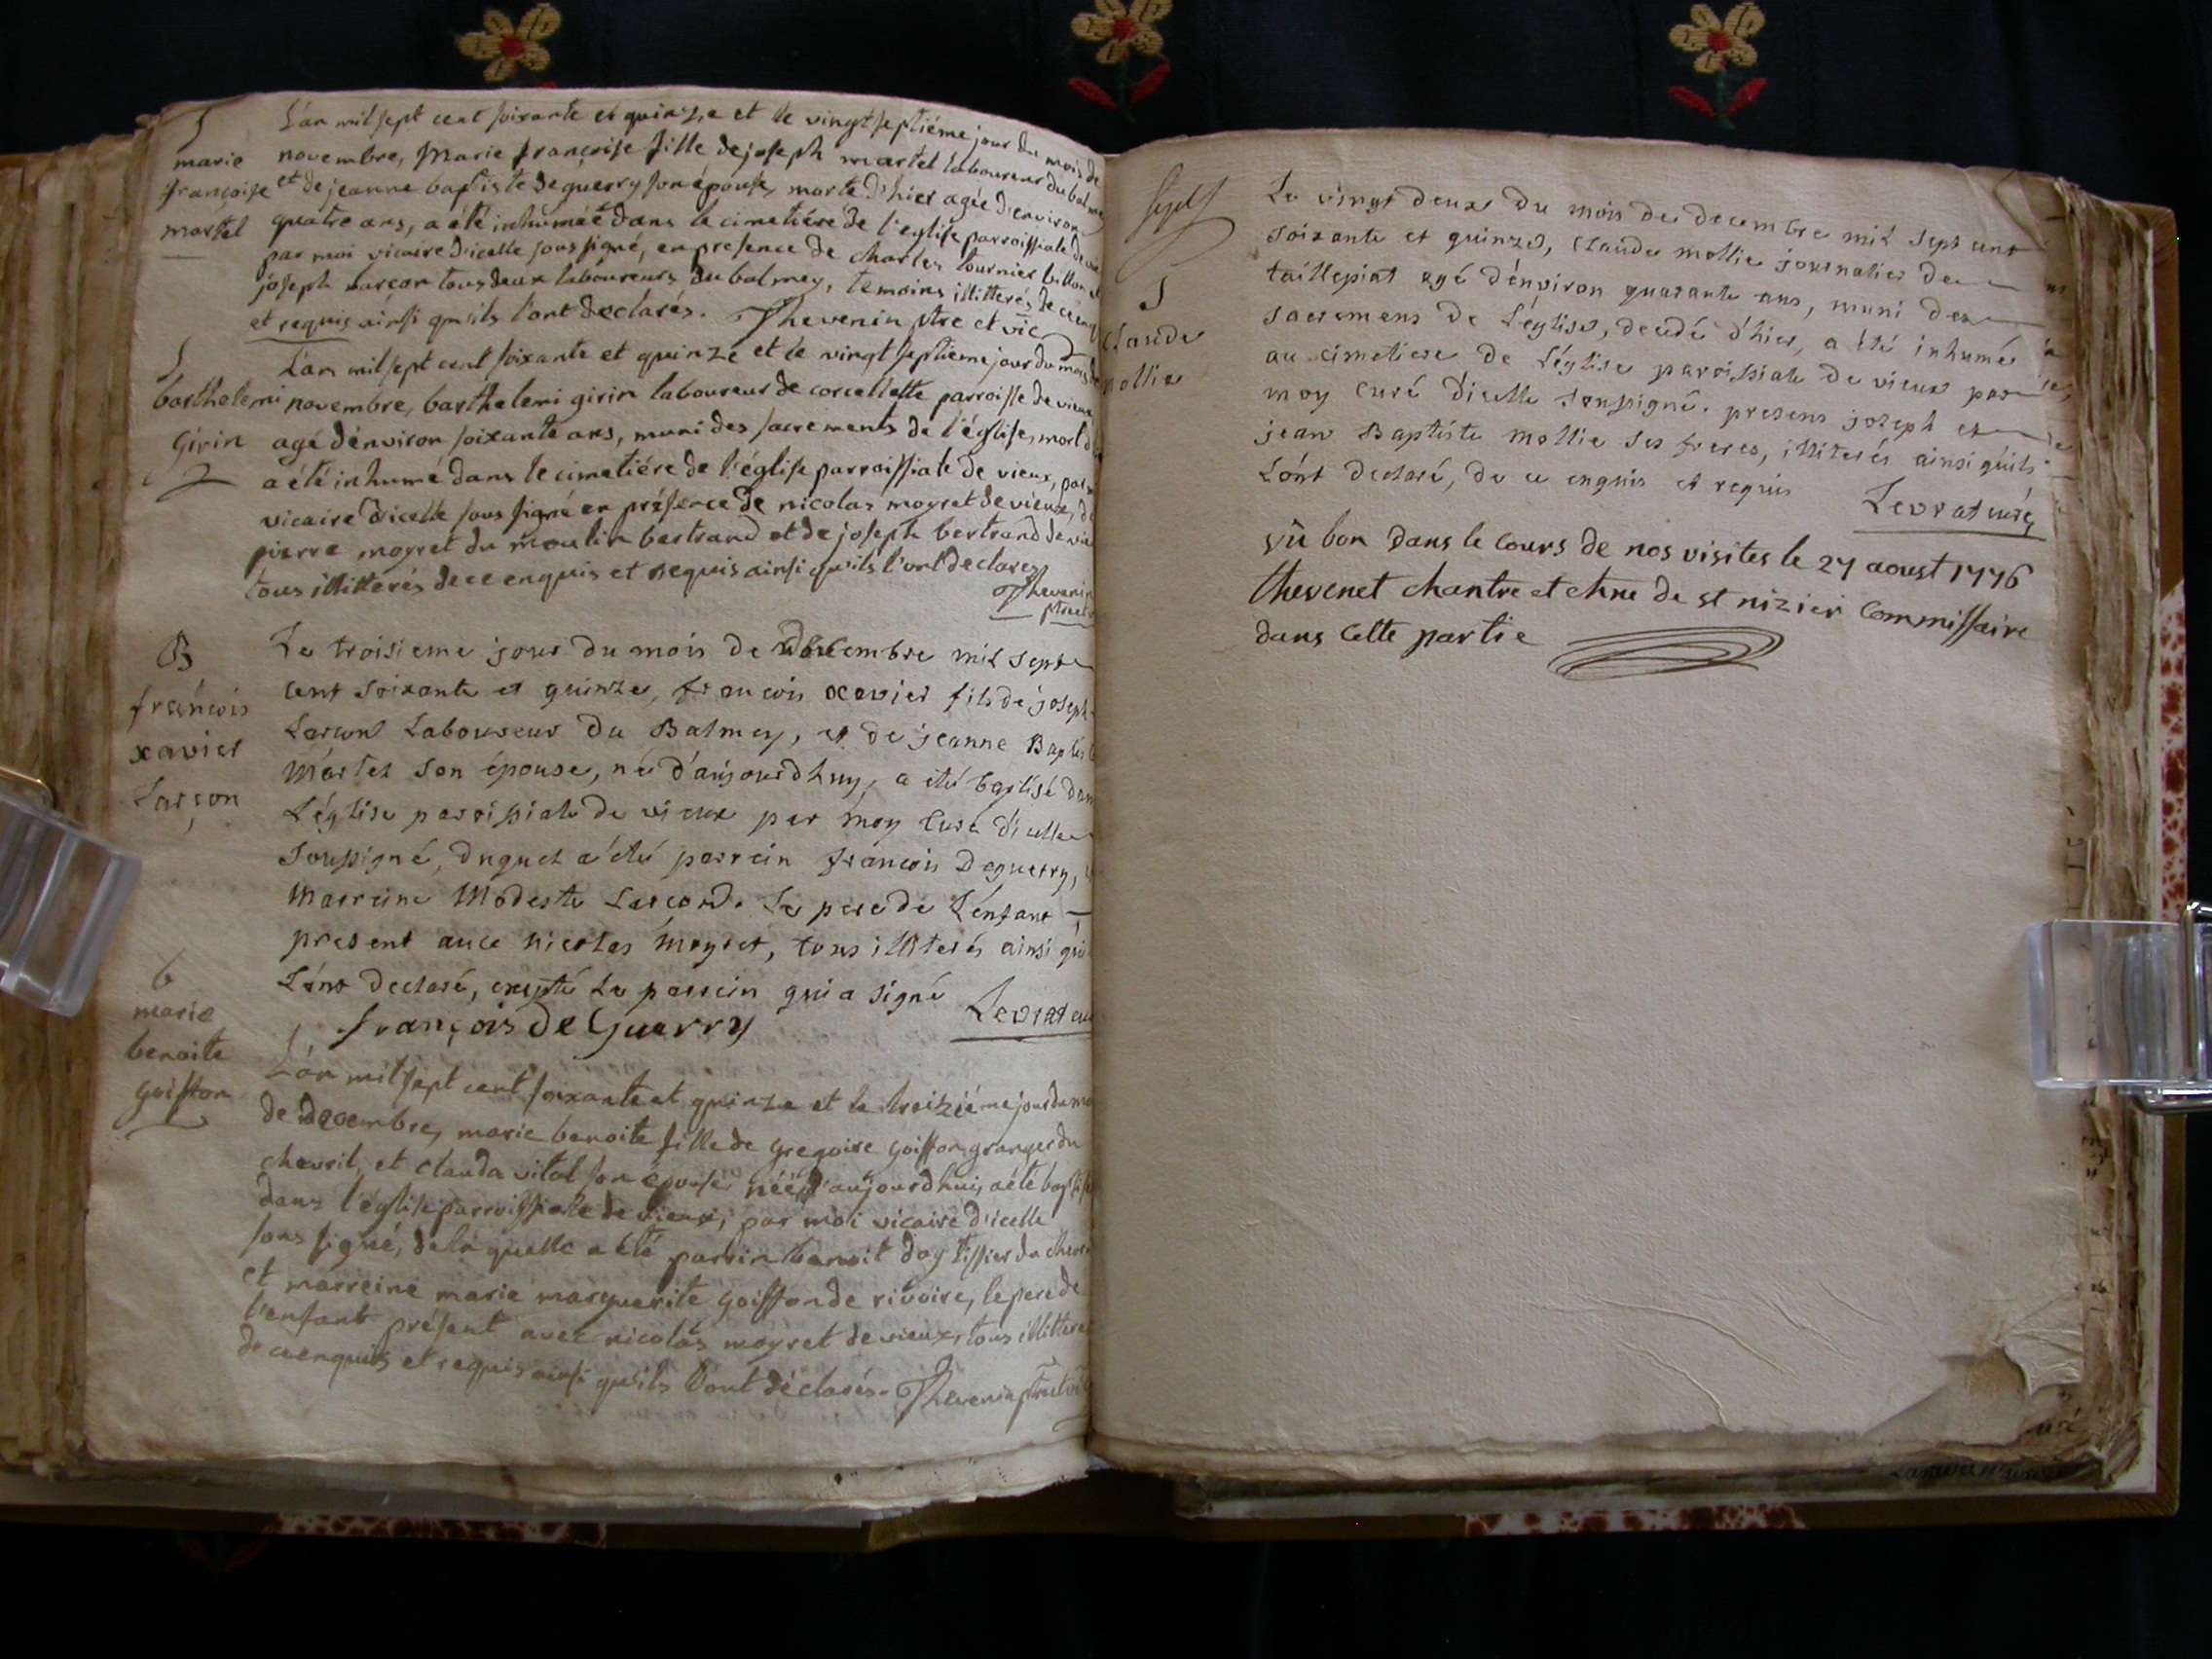 S
marie
françoise
martel
L'an mil sept cent soixante et quinze et le vingt septiéme jour du mois de
novembre, Marie françoise fille de joseph martel laboureur du balmey
et de jeanne baptiste deguerry son épouse, morte d'hier agée d'environ
quatre ans, a été inhumée dans le cimetiére de l'eglise parroissiale de
par moi vicaire d'icelle sous signé, en presence de charles tournier billon et
joseph larçon tous deux laboureurs du balmey, temoins illitterés de ce enq
et requis ainsi qu'ils l'ont declarés. Thevenin ptre et vic
S
barthelemi
Girin
L'an mil sept cent soixante et quinze et le vingt septieme jour du mois de
novembre, barthelemi girin laboureur de corcellette parroisse de vieux
agé d'environ soixante ans, muni des sacrements de l'église, mort d
a été inhumé dans le cimetiére de l'église parroissiale de vieux, par
vicaire d'icelle sous signé en présence de nicolas moyret de vieux, de
pierre moyret du moulin bertrand et de joseph bertrand de vie
tous illitterés de ce enquis et requis ainsi qu'ils l'ont declarés
Thevenin
ptre et
B
françois
xavier
Larçon
Le troisieme jour du mois de decembre mil sept
cent soixante et quinze, francois xavier fils de joseph
Larcon Laboureur du Balmey, et de jeanne Baptiste
Martel son épouse, né d'aujourdhuy, a été baptisé dan
L'église paroissiale de vieux par moy Curé d'icelle
soussigné, duquel a été parrein francois Deguerry,
Marreine Modeste Larcon. Le pere de L'enfant
present avec nicolas moyret, tous illiterés ainsi qui
L'ont declaré, excepté Le parrein qui a signé
Levrat cu
françois de Guerry
b
marie
benoite
goiffon
L'an mil sept cent soixante et quinze et le treiziéme jour du mo
de decembre, marie benoite fille de gregoire goiffon granger du
chevril, et clauda vital son épouse, née d'aujourdhui, a été baptisé
dans l'église parroissialle de vieux, par moi vicaire d'icelle
sous signé, de laquelle a été parrin benoit doy tissier du chevr
et marreine marie marguerite goiffon de rivoire, le pere de
l'enfant présent avec nicolas moyret de vieux, tous illitteré
de ce enquis et requis ainsi qu'ils l'ont déclarés. Thevenin ptre et vic
Sept
S
Claude
Mollie
Le vingt deux du mois de decembre mil sept cent
soixante et quinze, Claude mollie journalier de
taillepiat agé d'environ quarante ans, muni des
sacremens de L'église, decedé d'hier, a été inhumé
au cimetiere de L'église paroissiale de vieux par
moy curé d'icelle soussigné. presens joseph et
jean Baptiste Mollie ses freres, illiterés ainsi qu'ils
L'ont declaré, de ce enquis et requis
Levrat curé
vû bon dans le cours de nos visites le 27 aoust 1776
thevenet chantre et chne de st nizier Commissaire
dans cette partie